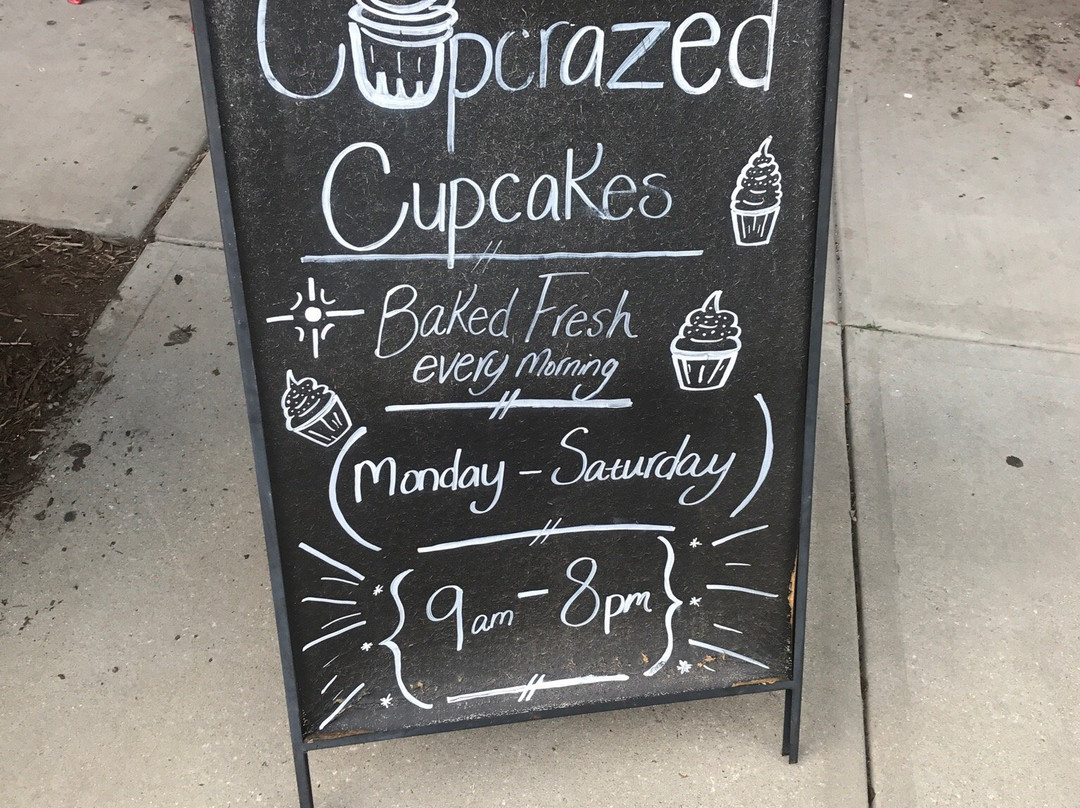 Cupcrazed
Cupcakes
Baked Fresh
every Morning
(Monday - Saturday)
{9am - 8pm}